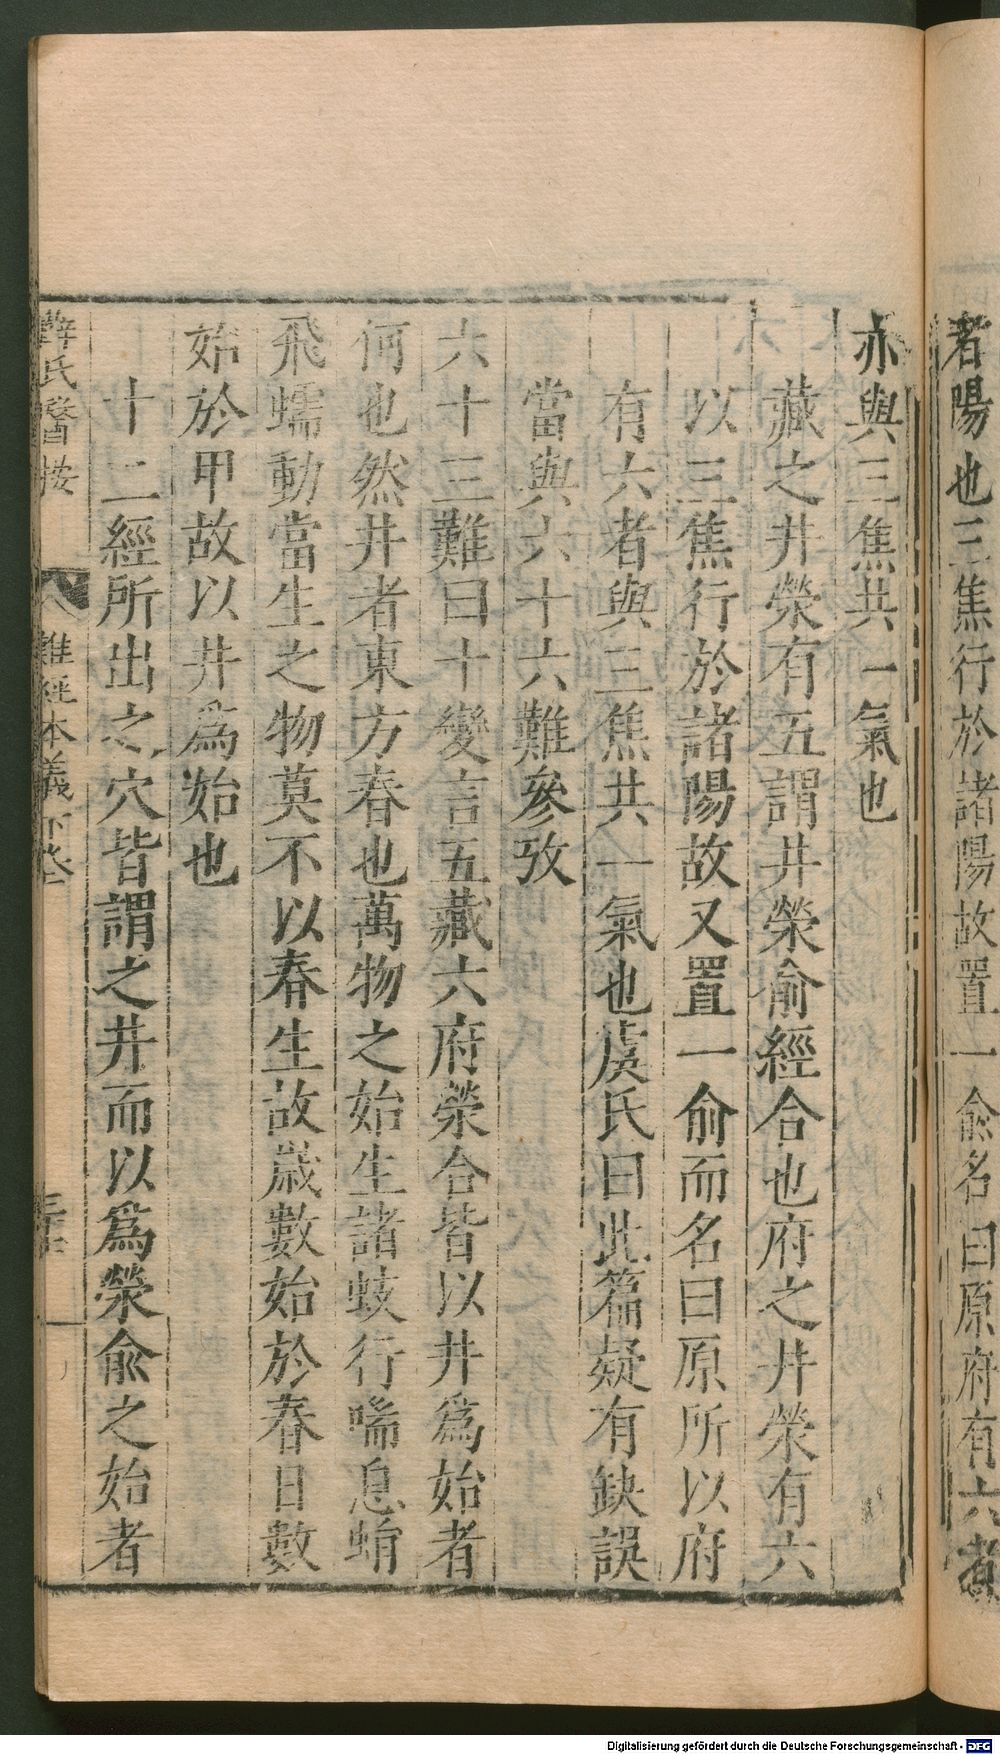 者陽也三焦行於諸陽故置一俞名曰原府有六者
亦與三焦共一氣也
藏之井滎有五謂井滎俞經合也府之井滎有六
以三焦行於諸陽故又置一俞而名曰原所以府
有六者與三焦共一氣也虞氏曰此篇疑有缺誤
當與六十六難參攷
六十三難曰十變言五藏六府滎合皆以井爲始者
何也然井者東方春也萬物之始生諸蚑行喘息蜎
飛蠕動當生之物莫不以春生故歲數始於春日數
始於甲故以井爲始也
十二經所出之穴皆謂之井而以爲滎俞之始者
薛氏醫按
難經本義下卷
三十
Digitalisierung gefördert durch die Deutsche Forschungsgemeinschaft - DFG